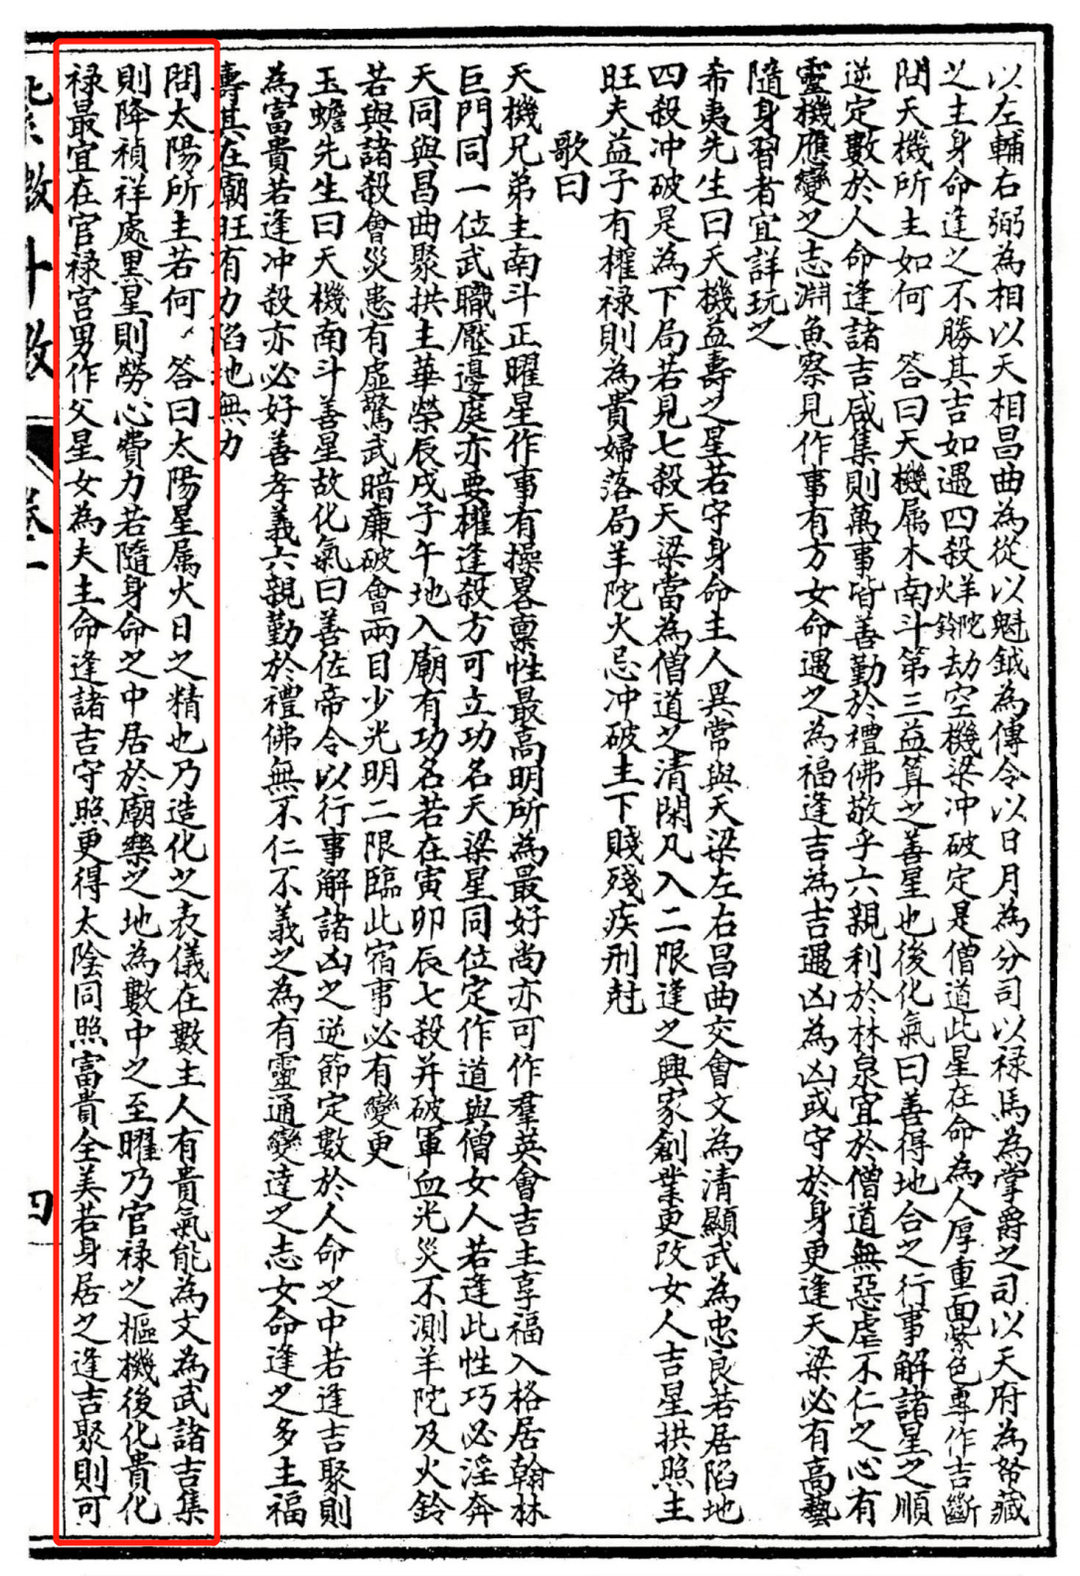 以左輔右弼為相以天相昌曲為從以魁鉞為傳令以日月為分司以祿馬為掌爵之司以天府為帑藏
之主身命逢之不勝其吉如遇四殺火羊鈴陀劫空機梁冲破定是僧道此星在命為人厚重面紫色專作吉斷
問天機所主如何　答曰天機属木南斗第三益算之善星也後化氣曰善得地合之行事解諸星之順
逆定數於人命逢諸吉咸集則萬事皆善勤於禮佛敬乎六親利於林泉宜於僧道無惡虐不仁之心有
靈機應變之志淵魚察見作事有方女命遇之為福逢吉為吉遇凶為凶或守於身更逢天梁必有高藝
隨身習者宜詳玩之
希夷先生曰天機益壽之星若守身命主人異常與天梁左右昌曲交會文為清顯武為忠良若居陷地
四殺冲破是為下局若見七殺天梁當為僧道之清閑凡入二限逢之興家創業更改女人吉星拱照主
旺夫益子有權祿則為貴婦落局羊陀火忌冲破主下賤殘疾刑尅
歌曰
天機兄弟主南斗正曜星作事有操畧禀性最高明所為最好尚亦可作羣英會吉主享福入格居翰林
巨門同一位武職壓邊庭亦要權逢殺方可立功名天梁星同位定作道與僧女人若逢此性巧必淫奔
天同與昌曲聚拱主華榮辰戌子午地入廟有功名若在寅卯辰七殺并破軍血光災不測羊陀及火鈴
若與諸殺會災患有虛驚武暗廉破會兩目少光明二限臨此宿事必有變更
玉蟾先生曰天機南斗善星故化氣曰善佐帝令以行事解諸凶之逆節定數於人命之中若逢吉聚則
為富貴若逢冲殺亦必好善孝義六親勤於禮佛無不仁不義之為有靈通變達之志女命逢之多主福
壽其在廟旺有力陷地無力
問太陽所主若何　答曰太陽星属火日之精也乃造化之表儀在數主人有貴氣能為文為武諸吉集
則降禎祥處黑星則勞心費力若隨身命之中居於廟樂之地為數中之至曜乃官祿之樞機後化貴化
祿最宜在官祿宮男作父星女為夫主命逢諸吉守照更得太陰同照富貴全美若身居之逢吉聚則可
紫微斗數　卷一　四